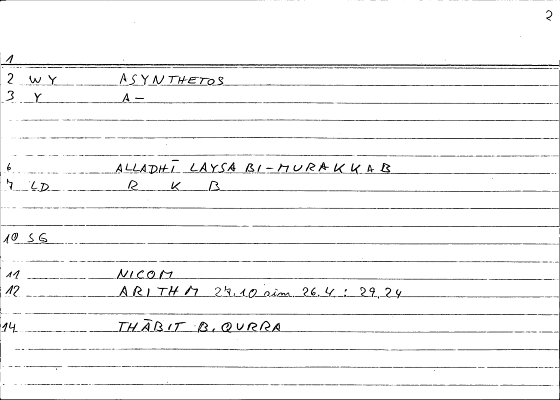 2
1
2 WY ASYNTHETOS
3 Y A-
6 ALLADHĪ LAYSA BI-MURAKKAB
7 LD R K B
10 SG
11 NICOM
12 ARITHM 27.10 sim. 26.4 : 29.24
14 THĀBIT B. QURRA